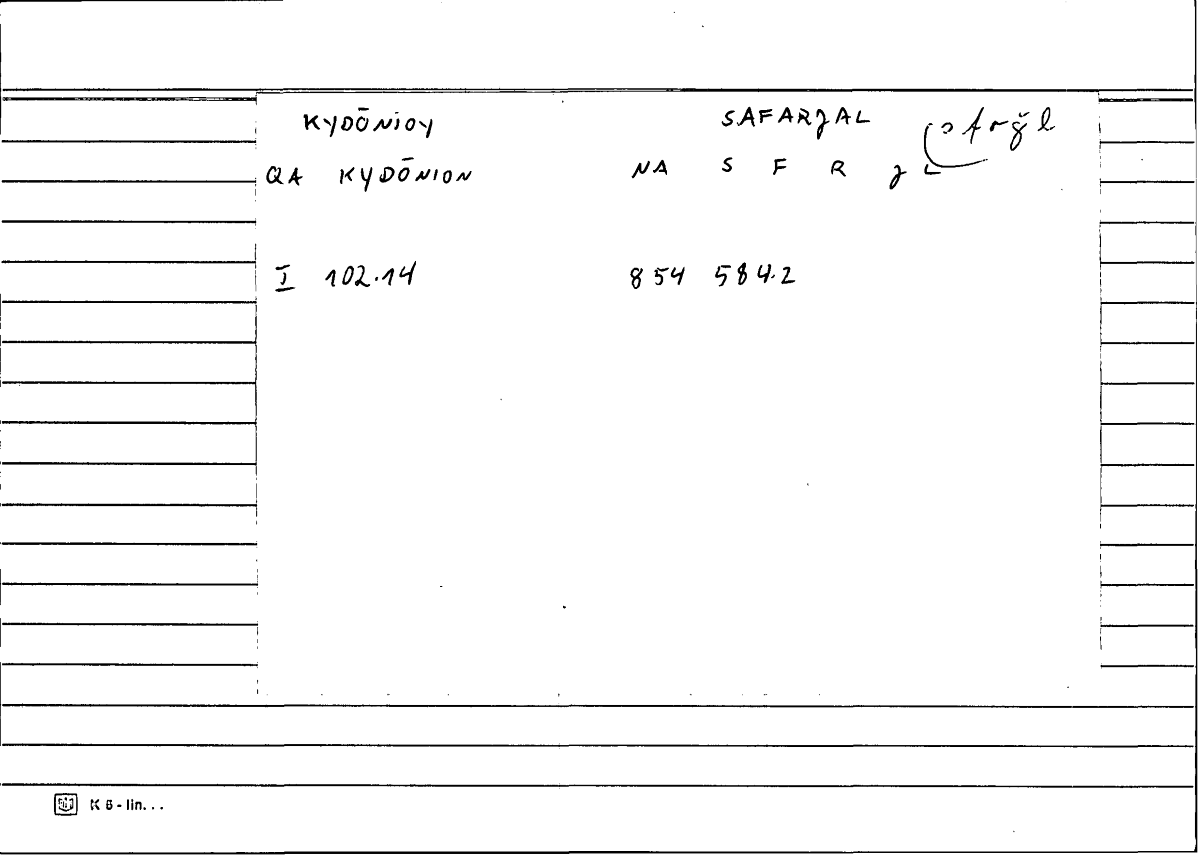 KYDŌNIOY SAFARJAL
QA KYDŌNION NA S F R J L
I 102.14 854 584.2
K 6 - lin...